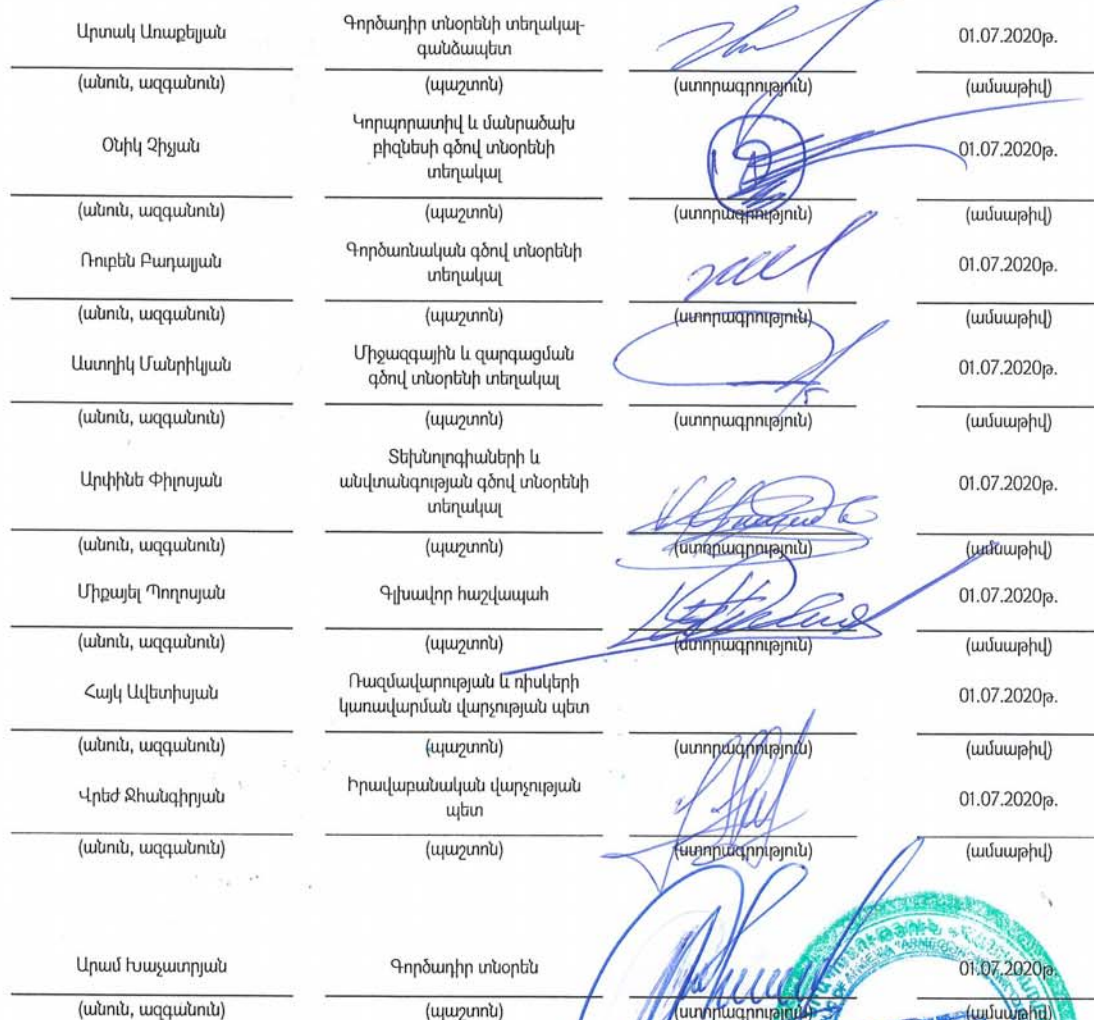 Արտակ Առաքելյան
Գործադիր տնօրենի տեղակալ-
գանձապետ
01.07.2020թ.
(անուն, ազգանուն) (պաշտոն) (ստորագրություն) (ամսաթիվ)
Օնիկ Չիչյան
Կորպորատիվ և մանրածախ
բիզնեսի գծով տնօրենի
տեղակալ
01.07.2020թ.
(անուն, ազգանուն) (պաշտոն) (ստորագրություն) (ամսաթիվ)
Ռուբեն Բադալյան
Գործառնական գծով տնօրենի
տեղակալ
01.07.2020թ.
(անուն, ազգանուն) (պաշտոն) (ստորագրություն) (ամսաթիվ)
Աստղիկ Մանրիկյան
Միջազգային և զարգացման
գծով տնօրենի տեղակալ
01.07.2020թ.
(անուն, ազգանուն) (պաշտոն) (ստորագրություն) (ամսաթիվ)
Արփինե Փիլոսյան
Տեխնոլոգիաների և
անվտանգության գծով տնօրենի
տեղակալ
01.07.2020թ.
(անուն, ազգանուն) (պաշտոն) (ստորագրություն) (ամսաթիվ)
Միքայել Պողոսյան
Գլխավոր հաշվապահ
01.07.2020թ.
(անուն, ազգանուն) (պաշտոն) (ստորագրություն) (ամսաթիվ)
Հայկ Ավետիսյան
Ռազմավարության և ռիսկերի
կառավարման վարչության պետ
01.07.2020թ.
(անուն, ազգանուն) (պաշտոն) (ստորագրություն) (ամսաթիվ)
Վրեժ Ջհանգիրյան
Իրավաբանական վարչության
պետ
01.07.2020թ.
(անուն, ազգանուն) (պաշտոն) (ստորագրություն) (ամսաթիվ)
Արամ Խաչատրյան
Գործադիր տնօրեն
01.07.2020թ.
(անուն, ազգանուն) (պաշտոն) (ստորագրություն) (ամսաթիվ)